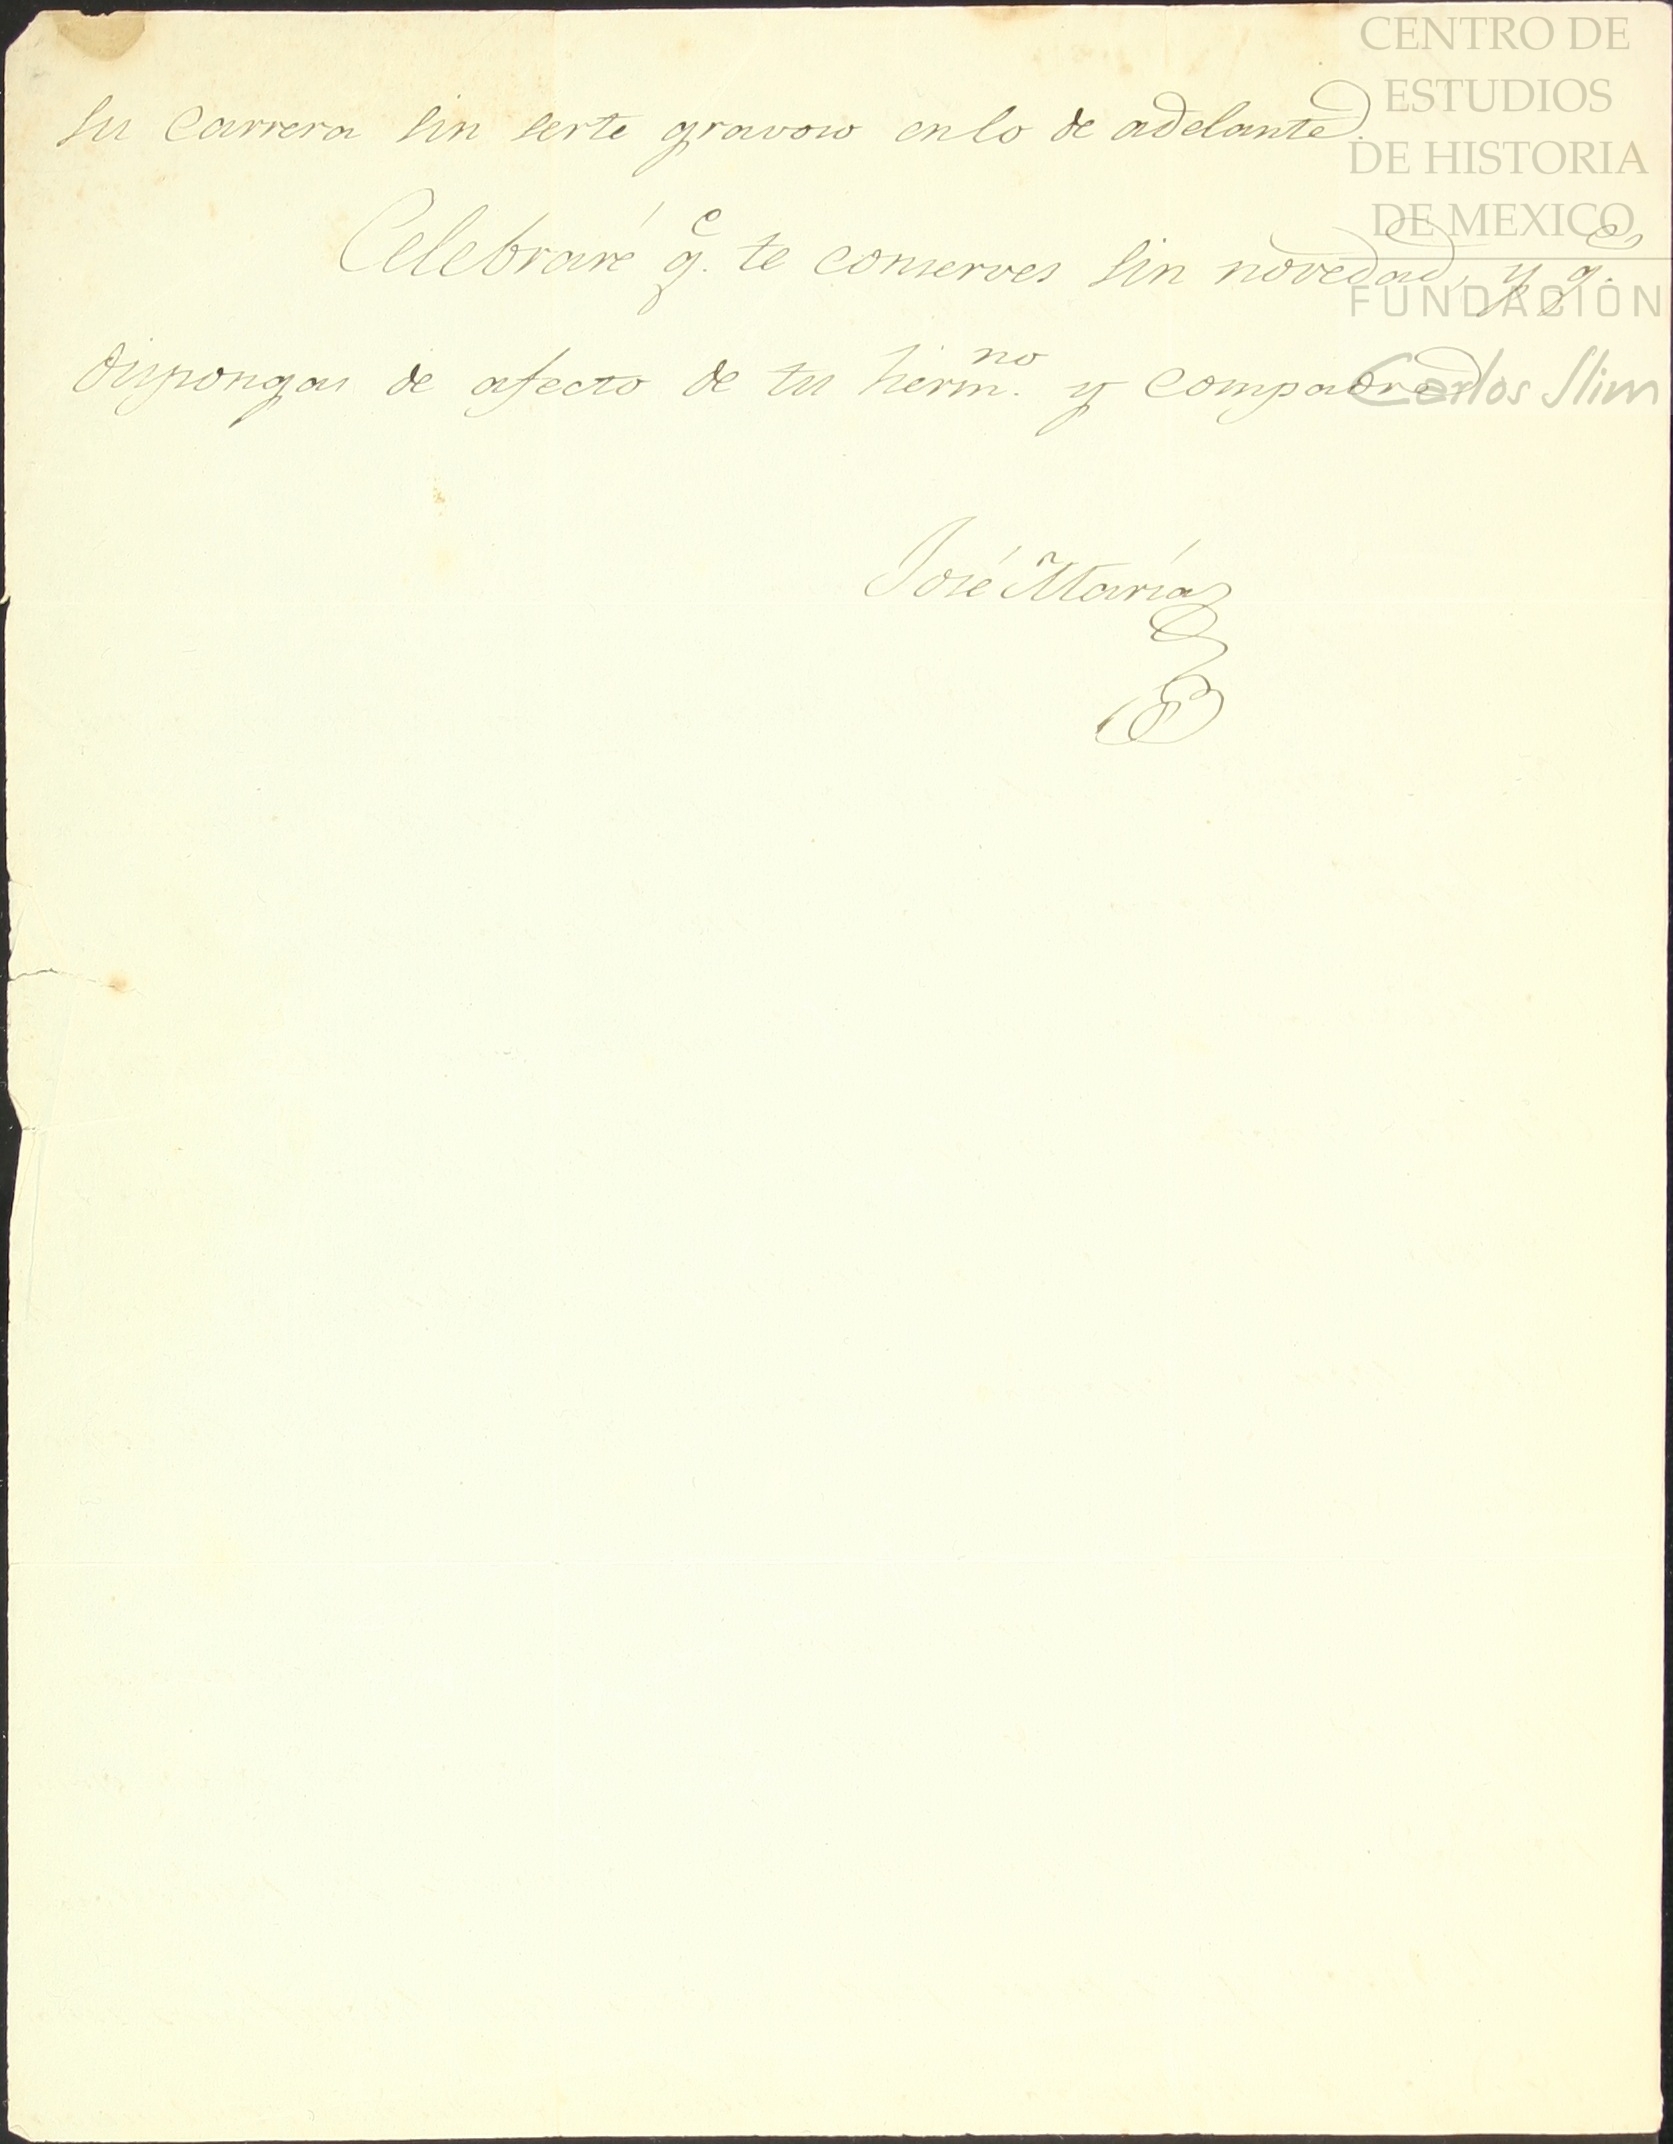 su carrera sin serte gravoso en lo de adelante.
Celebraré q.e te conserves sin novedad, y q.e
dispongas de afecto de tu herm.no y compadre
José María
CENTRO DE
ESTUDIOS
DE HISTORIA
DE MEXICO
FUNDACIÓN
Carlos Slim